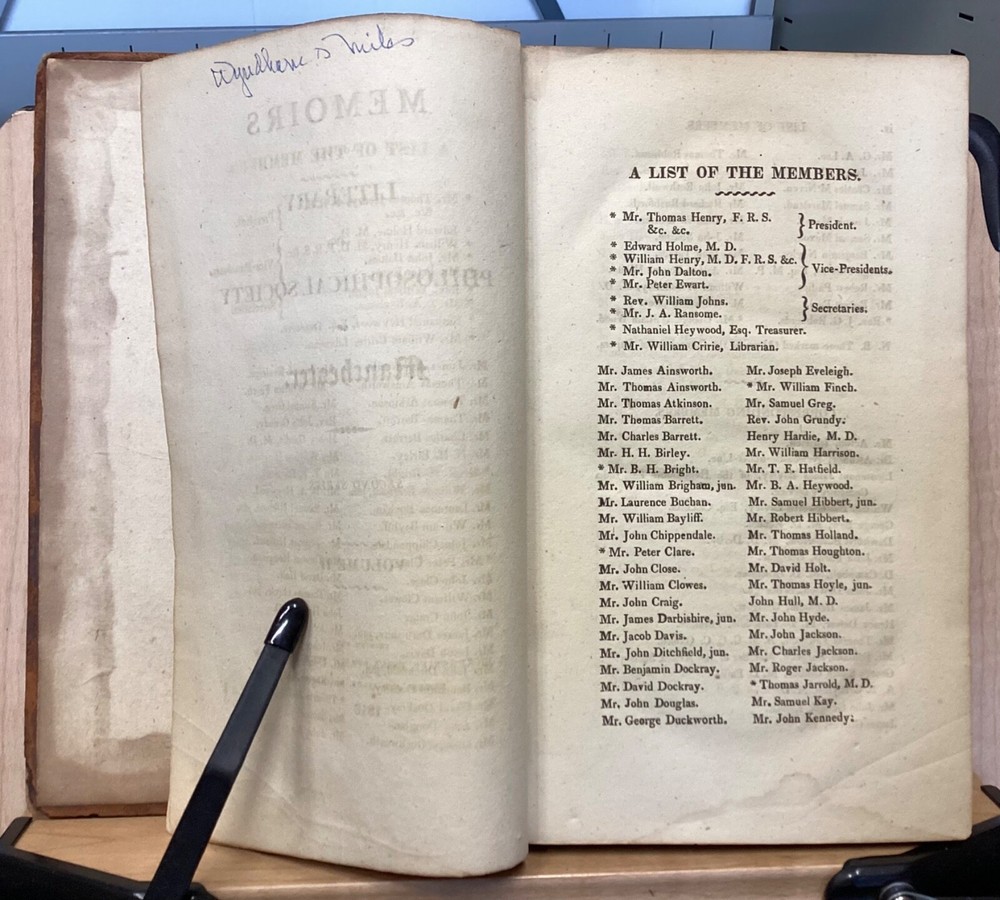 Wyndham D Miles
A LIST OF THE MEMBERS.
* Mr. Thomas Henry, F. R. S. &c. &c. } President.
* Edward Holme, M. D.
* William Henry, M. D. F. R. S. &c.
* Mr. John Dalton. } Vice-Presidents.
* Mr. Peter Ewart.
* Rev. William Johns.
* Mr. J. A. Ransome. } Secretaries.
* Nathaniel Heywood, Esq. Treasurer.
* Mr. William Cririe, Librarian.
Mr. James Ainsworth.
Mr. Thomas Ainsworth.
Mr. Thomas Atkinson.
Mr. Thomas Barrett.
Mr. Charles Barrett.
Mr. H. H. Birley.
* Mr. B. H. Bright.
Mr. William Brigham, jun.
Mr. Laurence Buchan.
Mr. William Bayliff.
Mr. John Chippendale.
* Mr. Peter Clare.
Mr. John Close.
Mr. William Clowes.
Mr. John Craig.
Mr. James Darbishire, jun.
Mr. Jacob Davis.
Mr. John Ditchfield, jun.
Mr. Benjamin Dockray.
Mr. David Dockray.
Mr. John Douglas.
Mr. George Duckworth.
Mr. Joseph Eveleigh.
* Mr. William Finch.
Mr. Samuel Greg.
Rev. John Grundy.
Henry Hardie, M. D.
Mr. William Harrison.
Mr. T. F. Hatfield.
Mr. B. A. Heywood.
Mr. Samuel Hibbert, jun.
Mr. Robert Hibbert.
Mr. Thomas Holland.
Mr. Thomas Houghton.
Mr. David Holt.
Mr. Thomas Hoyle, jun.
John Hull, M. D.
Mr. John Hyde.
Mr. John Jackson.
Mr. Charles Jackson.
Mr. Roger Jackson.
* Thomas Jarrold, M. D.
Mr. Samuel Kay.
Mr. John Kennedy.